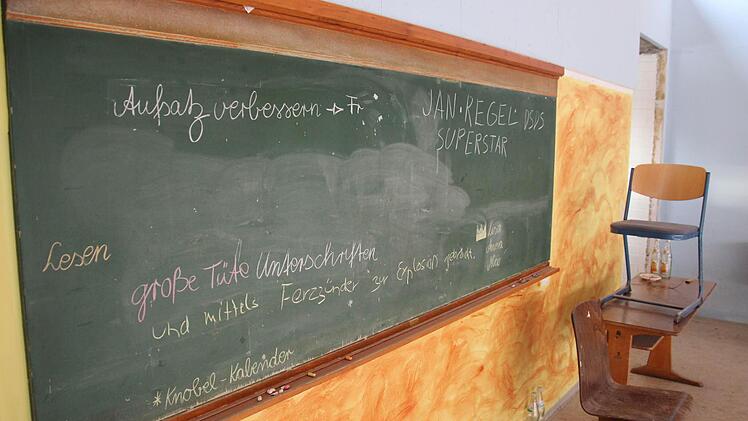 Aufsatz verbessern → Fr
JAN·REGEL DSDS
SUPERSTAR
Lesen
große Tüte Unterschriften
und mittels Fernzünder zur Explosion gebracht.
*Knobel-Kalender